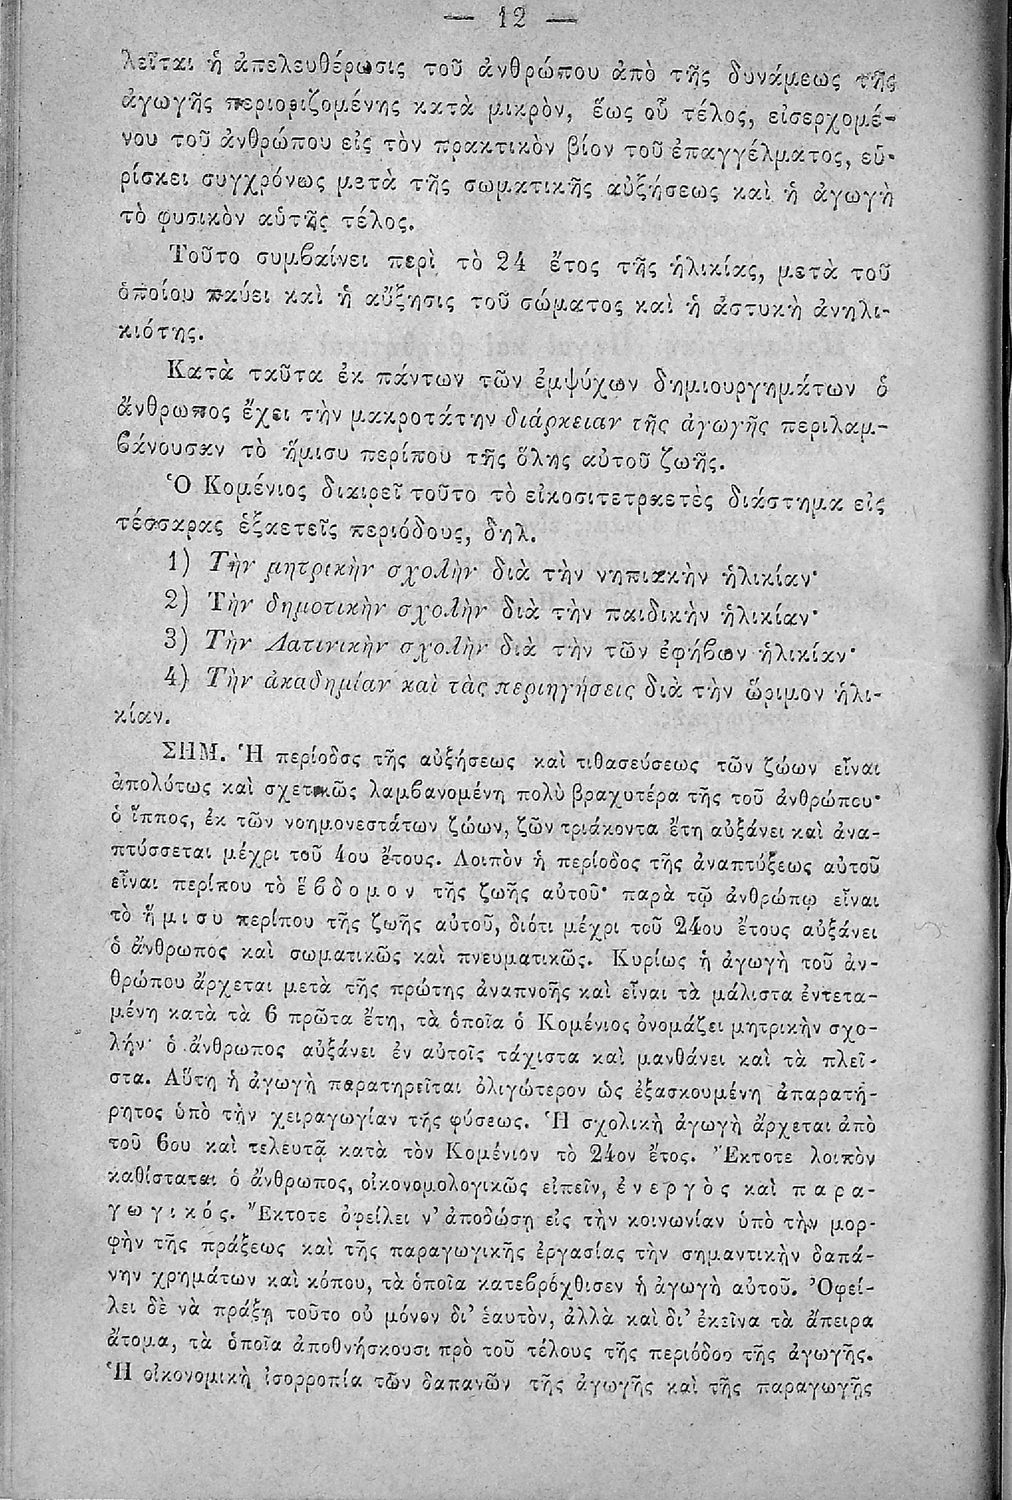 — 12 —
λεῖται ἡ ἀπελευθέρωσις τοῦ ἀνθρώπου ἀπὸ τῆς δυνάμεως τῆς
ἀγωγῆς περιοριζομένης κατὰ μικρὸν, ἕως οὗ τέλος, εἰσερχομέ-
νου τοῦ ἀνθρώπου εἰς τὸν πρακτικὸν βίον τοῦ ἐπαγγέλματος, εὑ-
ρίσκει συγχρόνως μετὰ τῆς σωματικῆς αὐξήσεως καὶ ἡ ἀγωγὴ
τὸ φυσικὸν αὑτῆς τέλος.
Τοῦτο συμβαίνει περὶ τὸ 24 ἔτος τῆς ἡλικίας, μετὰ τοῦ
ὁποίου παύει καὶ ἡ αὔξησις τοῦ σώματος καὶ ἡ ἀστυκὴ ἀνηλι-
κιότης.
Κατὰ ταῦτα ἐκ πάντων τῶν ἐμψύχων δημιουργημάτων ὁ
ἄνθρωπος ἔχει τὴν μακροτάτην διάρκειαν τῆς ἀγωγῆς περιλαμ-
βάνουσαν τὸ ἥμισυ περίπου τῆς ὅλης αὐτοῦ ζωῆς.
Ὁ Κομένιος διαιρεῖ τοῦτο τὸ εἰκοσιτετραετὲς διάστημα εἰς
τέσσαρας ἑξαετεῖς περιόδους, δηλ.
1) Τὴν μητρικὴν σχολὴν διὰ τὴν νηπιακὴν ἡλικίαν·
2) Τὴν δημοτικὴν σχολὴν διὰ τὴν παιδικὴν ἡλικίαν·
3) Τὴν Λατινικὴν σχολὴν διὰ τὴν τῶν ἐφήβων ἡλικίαν·
4) Τὴν ἀκαδημίαν καὶ τὰς περιηγήσεις διὰ τὴν ὥριμον ἡλι-
κίαν.
ΣΗΜ. Ἡ περίοδος τῆς αὐξήσεως καὶ τιθασεύσεως τῶν ζώων εἶναι
ἀπολύτως καὶ σχετικῶς λαμβανομένη πολὺ βραχυτέρα τῆς τοῦ ἀνθρώπου·
ὁ ἵππος, ἐκ τῶν νοημονεστάτων ζώων, ζῶν τριάκοντα ἔτη αὐξάνει καὶ ἀνα-
πτύσσεται μέχρι τοῦ 4ου ἔτους. Λοιπὸν ἡ περίοδος τῆς ἀναπτύξεως αὐτοῦ
εἶναι περίπου τὸ ἕβδομον τῆς ζωῆς αὐτοῦ· παρὰ τῷ ἀνθρώπῳ εἶναι
τὸ ἥμισυ περίπου τῆς ζωῆς αὐτοῦ, διότι μέχρι τοῦ 24ου ἔτους αὐξάνει
ὁ ἄνθρωπος καὶ σωματικῶς καὶ πνευματικῶς. Κυρίως ἡ ἀγωγὴ τοῦ ἀν-
θρώπου ἄρχεται μετὰ τῆς πρώτης ἀναπνοῆς καὶ εἶναι τὰ μάλιστα ἐντετα-
μένη κατὰ τὰ 6 πρῶτα ἔτη, τὰ ὁποῖα ὁ Κομένιος ὀνομάζει μητρικὴν σχο-
λήν· ὁ ἄνθρωπος αὐξάνει ἐν αὐτοῖς τάχιστα καὶ μανθάνει καὶ τὰ πλεῖ-
στα. Αὕτη ἡ ἀγωγὴ παρατηρεῖται ὀλιγώτερον ὡς ἐξασκουμένη ἀπαρατή-
ρητος ὑπὸ τὴν χειραγωγίαν τῆς φύσεως. Ἡ σχολικὴ ἀγωγὴ ἄρχεται ἀπὸ
τοῦ 6ου καὶ τελευτᾷ κατὰ τὸν Κομένιον τὸ 24ον ἔτος. Ἔκτοτε λοιπὸν
καθίσταται ὁ ἄνθρωπος, οἰκονομολογικῶς εἰπεῖν, ἐνεργὸς καὶ παρα-
γωγικός. Ἔκτοτε ὀφείλει ν' ἀποδώσῃ εἰς τὴν κοινωνίαν ὑπὸ τὴν μορ-
φὴν τῆς πράξεως καὶ τῆς παραγωγικῆς ἐργασίας τὴν σημαντικὴν δαπά-
νην χρημάτων καὶ κόπου, τὰ ὁποῖα κατεβρόχθισεν ἡ ἀγωγὴ αὐτοῦ. Ὀφεί-
λει δὲ νὰ πράξῃ τοῦτο οὐ μόνον δι' ἑαυτὸν, ἀλλὰ καὶ δι' ἐκεῖνα τὰ ἄπειρα
ἄτομα, τὰ ὁποῖα ἀποθνήσκουσι πρὸ τοῦ τέλους τῆς περιόδου τῆς ἀγωγῆς.
Ἡ οἰκονομικὴ ἰσορροπία τῶν δαπανῶν τῆς ἀγωγῆς καὶ τῆς παραγωγῆς